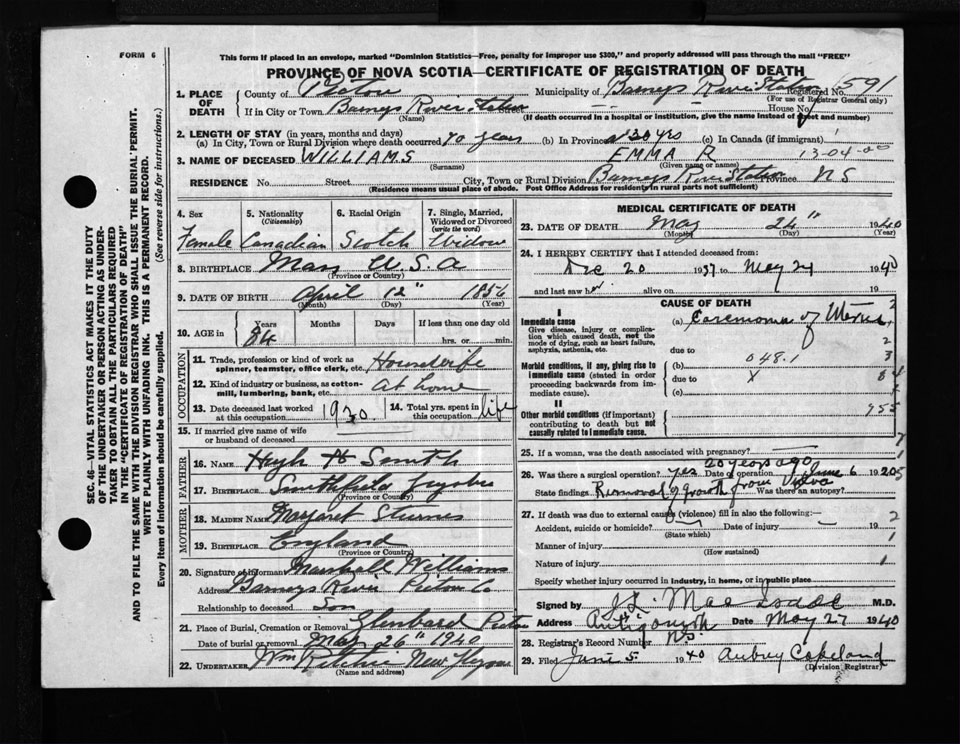 FORM 6
This form if placed in an envelope, marked "Dominion Statistics—Free, penalty for improper use $300," and properly addressed will pass through the mail "FREE"
PROVINCE OF NOVA SCOTIA—CERTIFICATE OF REGISTRATION OF DEATH
SEC. 46—VITAL STATISTICS ACT MAKES IT THE DUTY
OF THE UNDERTAKER OR PERSON ACTING AS UNDER-
TAKER TO OBTAIN ALL THE PARTICULARS REQUIRED
IN THE "CERTIFICATE OF REGISTRATION OF DEATH"
AND TO FILE THE SAME WITH THE DIVISION REGISTRAR WHO SHALL ISSUE THE BURIAL PERMIT.
WRITE PLAINLY WITH UNFADING INK. THIS IS A PERMANENT RECORD.
Every item of information should be carefully supplied. (See reverse side for instructions.)
1. PLACE OF DEATH
County of Pictou Municipality of Barneys River Station Registered No. 591
(For use of Registrar General only)
If in City or Town Barneys River Station Street House No.
(Name) (If death occurred in a hospital or institution, give the name instead of street and number)
2. LENGTH OF STAY (in years, months and days)
(a) In City, Town or Rural Division where death occurred 40 years (b) In Province 30 yrs (c) In Canada (if immigrant)
3. NAME OF DECEASED WILLIAMS EMMA R 13-04-00
(Surname) (Given name or names)
RESIDENCE No. Street City, Town or Rural Division Barneys River Station Province N S
(Residence means usual place of abode. Post Office Address for residents in rural parts not sufficient)
4. Sex 5. Nationality (Citizenship) 6. Racial Origin 7. Single, Married, Widowed or Divorced (write the word)
Female Canadian Scotch Widow
8. BIRTHPLACE Mass U.S.A
(Province or Country)
9. DATE OF BIRTH April 12" 1856
(Month) (Day) (Year)
10. AGE in Years Months Days If less than one day old
84 hrs. or min.
OCCUPATION
11. Trade, profession or kind of work as spinner, teamster, office clerk, etc. Housewife
12. Kind of industry or business, as cotton-mill, lumbering, bank, etc. at home
13. Date deceased last worked at this occupation 1930 14. Total yrs. spent in this occupation life
15. If married give name of wife or husband of deceased
FATHER
16. NAME Hugh H Smith
17. BIRTHPLACE Smithfield
MOTHER
18. MAIDEN NAME Margaret
19. BIRTHPLACE England
(Province or Country)
20. Signature of informant Marshall Williams
Address Barneys River Pictou Co
Relationship to deceased Son
21. Place of Burial, Cremation or Removal Glenbard Pictou
Date of burial or removal May 26" 1940
22. UNDERTAKER Wm New
(Name and address)
MEDICAL CERTIFICATE OF DEATH
23. DATE OF DEATH May 24" 1940
(Month) (Day) (Year)
24. I HEREBY CERTIFY that I attended deceased from:
Dec 20 1937 to May 24 1940
and last saw h alive on 19
CAUSE OF DEATH
I
Immediate cause (a) Carcinoma of Uterus
Give disease, injury or complication which caused death, not the mode of dying, such as heart failure, asphyxia, asthenia, etc.
due to 048.1
Morbid conditions, if any, giving rise to immediate cause (stated in order proceeding backwards from immediate cause).
(b) due to X
(c)
II
Other morbid conditions (if important) contributing to death but not causally related to immediate cause.
955
25. If a woman, was the death associated with pregnancy?
20 years ago
26. Was there a surgical operation? Yes Date of operation June 6 1920
State findings Removal of growth from Vulva Was there an autopsy?
27. If death was due to external causes (violence) fill in also the following:
Accident, suicide or homicide? Date of injury 19
(State which)
Manner of injury
(How sustained)
Nature of injury
Specify whether injury occurred in industry, in home, or in public place
Signed by J L MacIsaac M.D.
Address Antigonish N.S. Date May 27 1940
28. Registrar's Record Number
29. Filed June 5 1940 Aubrey Copeland
(Division Registrar)